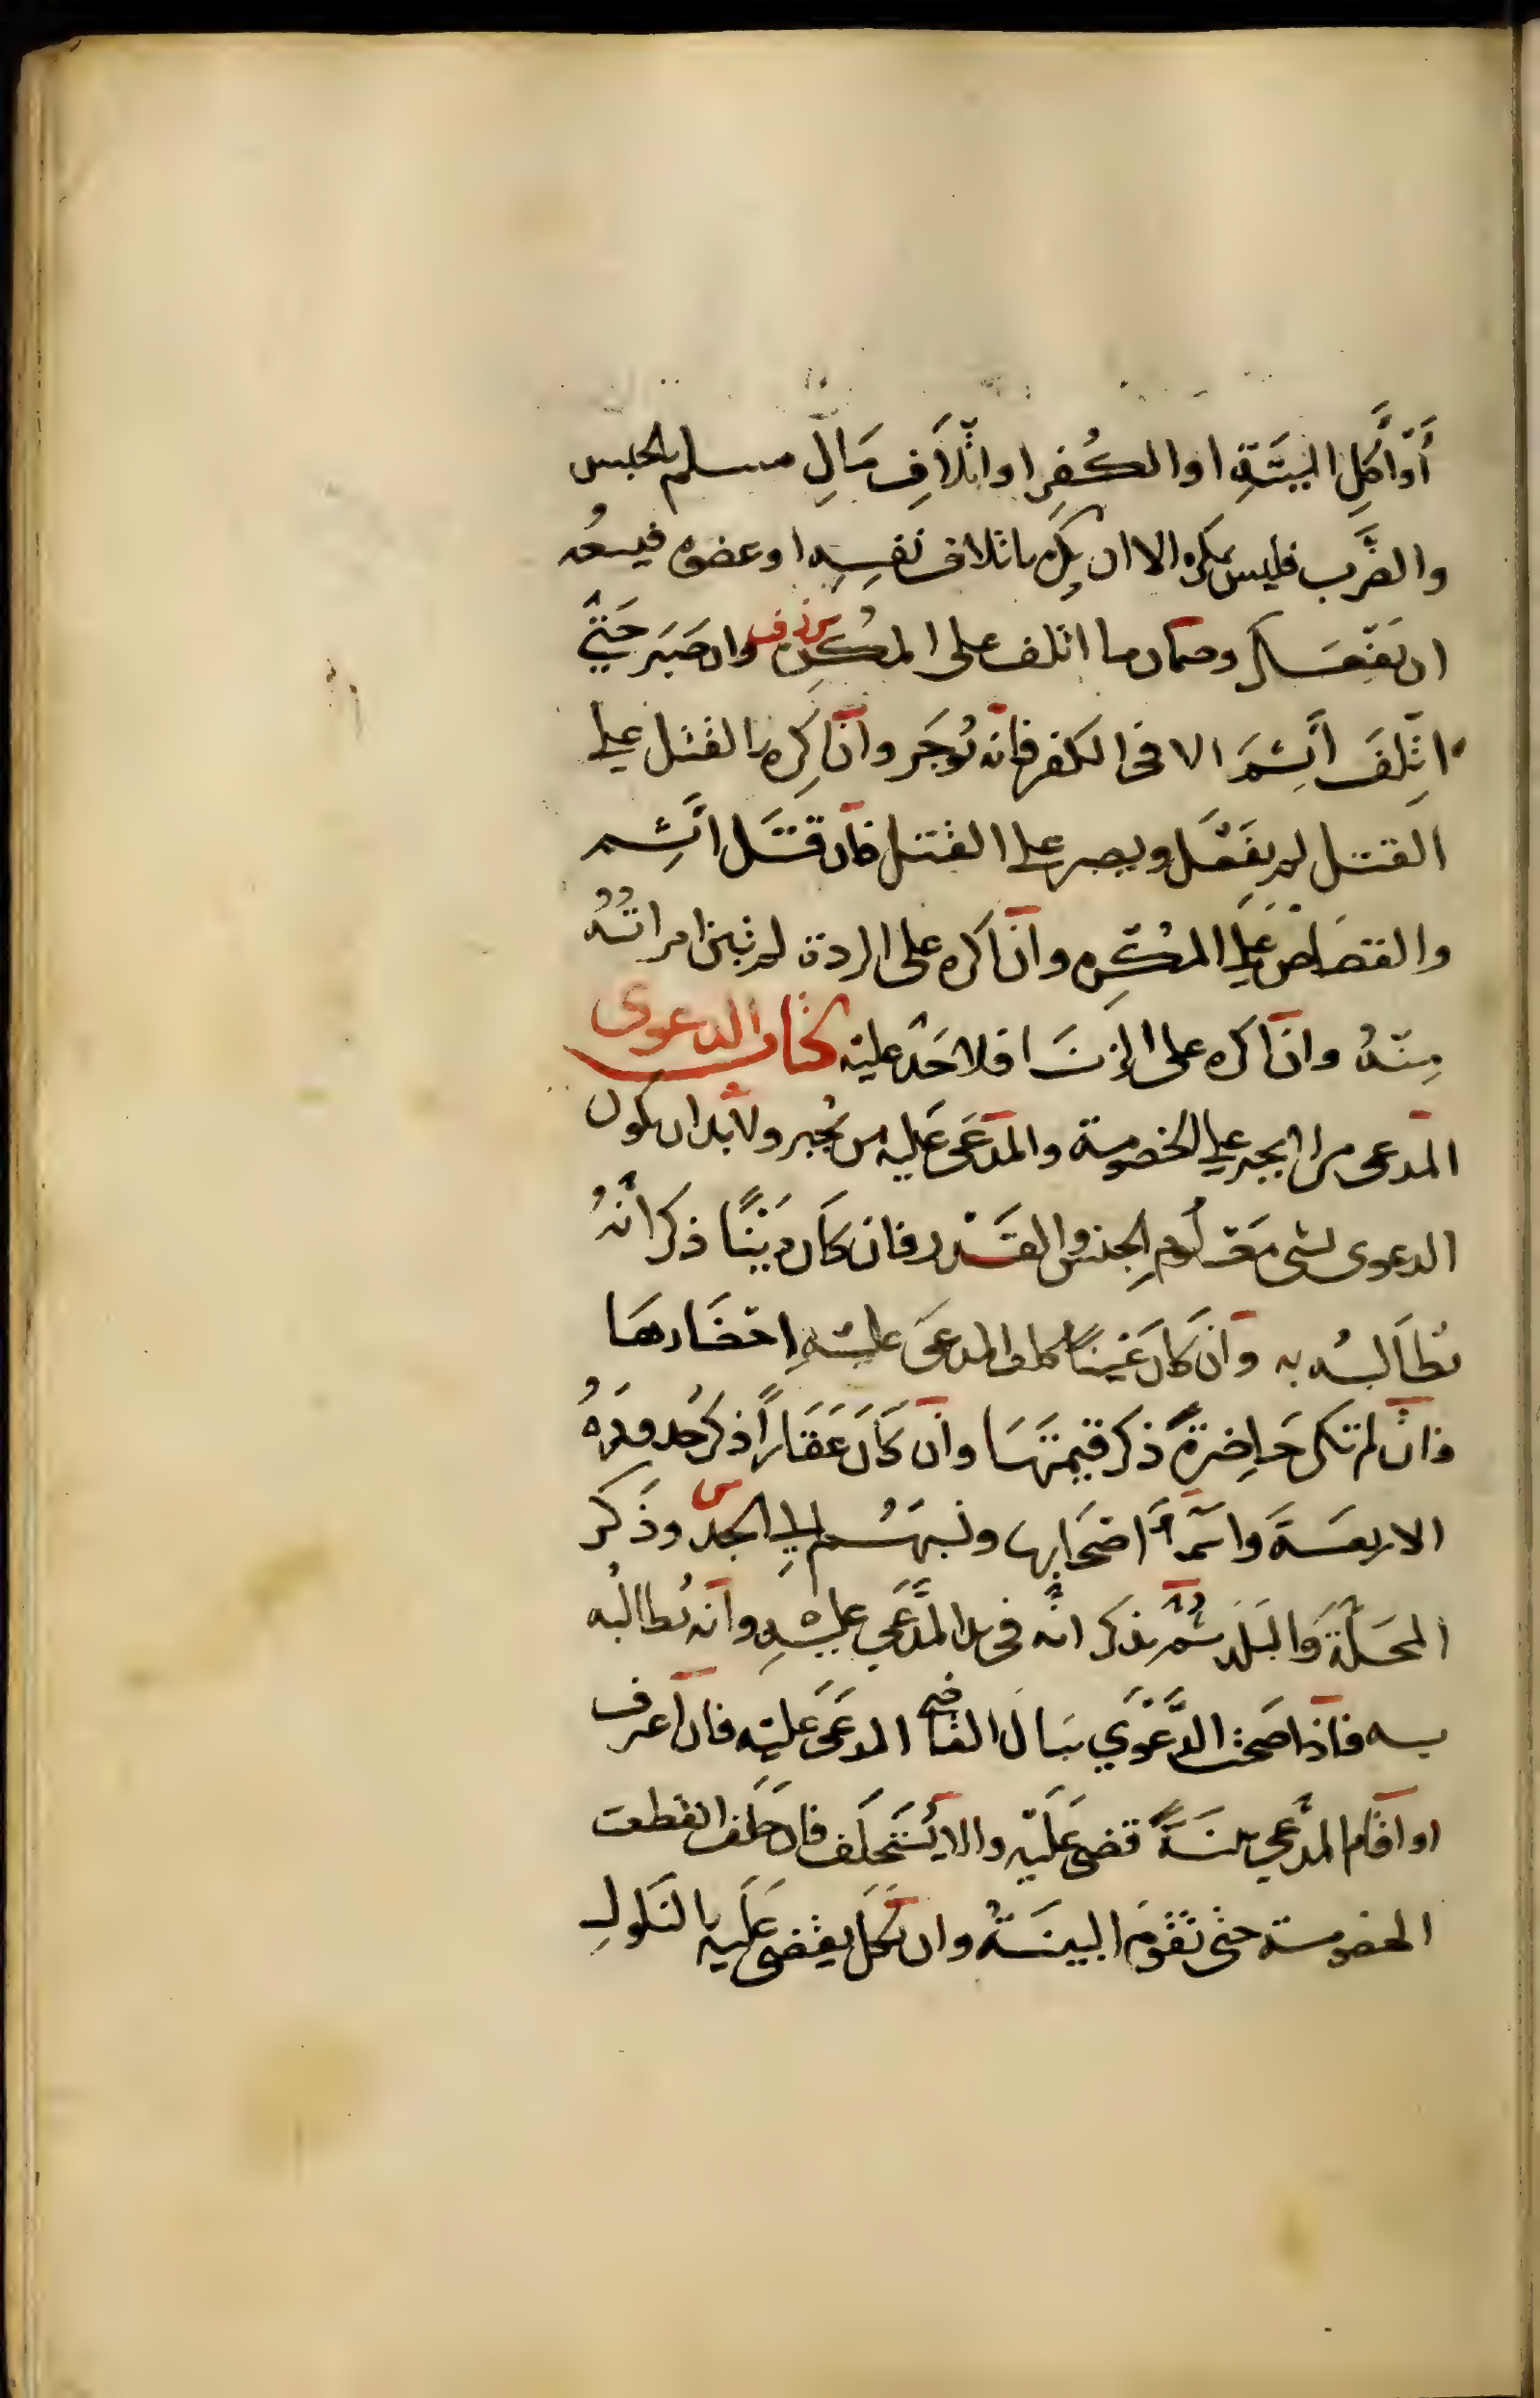 أو أكل الميتة او الكفر او اتلاف مال مسلم بالحبس
والضرب فليس بمكره الا ان يكره باتلاف نفسه او عضوه فيسعه
ان يفعل وضمان ما اتلف على المكره وان صبر حتى
اتلف أثم الا في الكفر فانه يوجر وان اكره بالقتل على
القتل لم يفعل ويصبر على القتل فان قتل أثم
والقصاص على المكره وان اكره على الردة لم تبن امراته
منه وان اكره على الزنا فلا حد عليه كتاب الدعوى
المدعى من لا يجبر على الخصومة والمدعى عليه من يجبر ولا بد ان يكون
الدعوى بشى معلوم الجنس والقدر فان كان دينا ذكر انه
يطالبه به وان كان عينا كلف المدعى عليه احضارها
فان لم تكن حاضرة ذكر قيمتها وان كان عقارا ذكر حدوده
الاربعة واسماء اصحابها ونسبهم الى الجد وذكر
المحلة والبلد ثم يذكر انه في يد المدعي عليه وانه يطالبه
به فاذا صحت الدعوي سال القاضي المدعى عليه فان اعترف
او اقام المدعي بينة قضى عليه والا يستحلف فان حلف انقطعت
الخصومة حتى تقوم البينة وان نكل يقضى عليه بالنكول